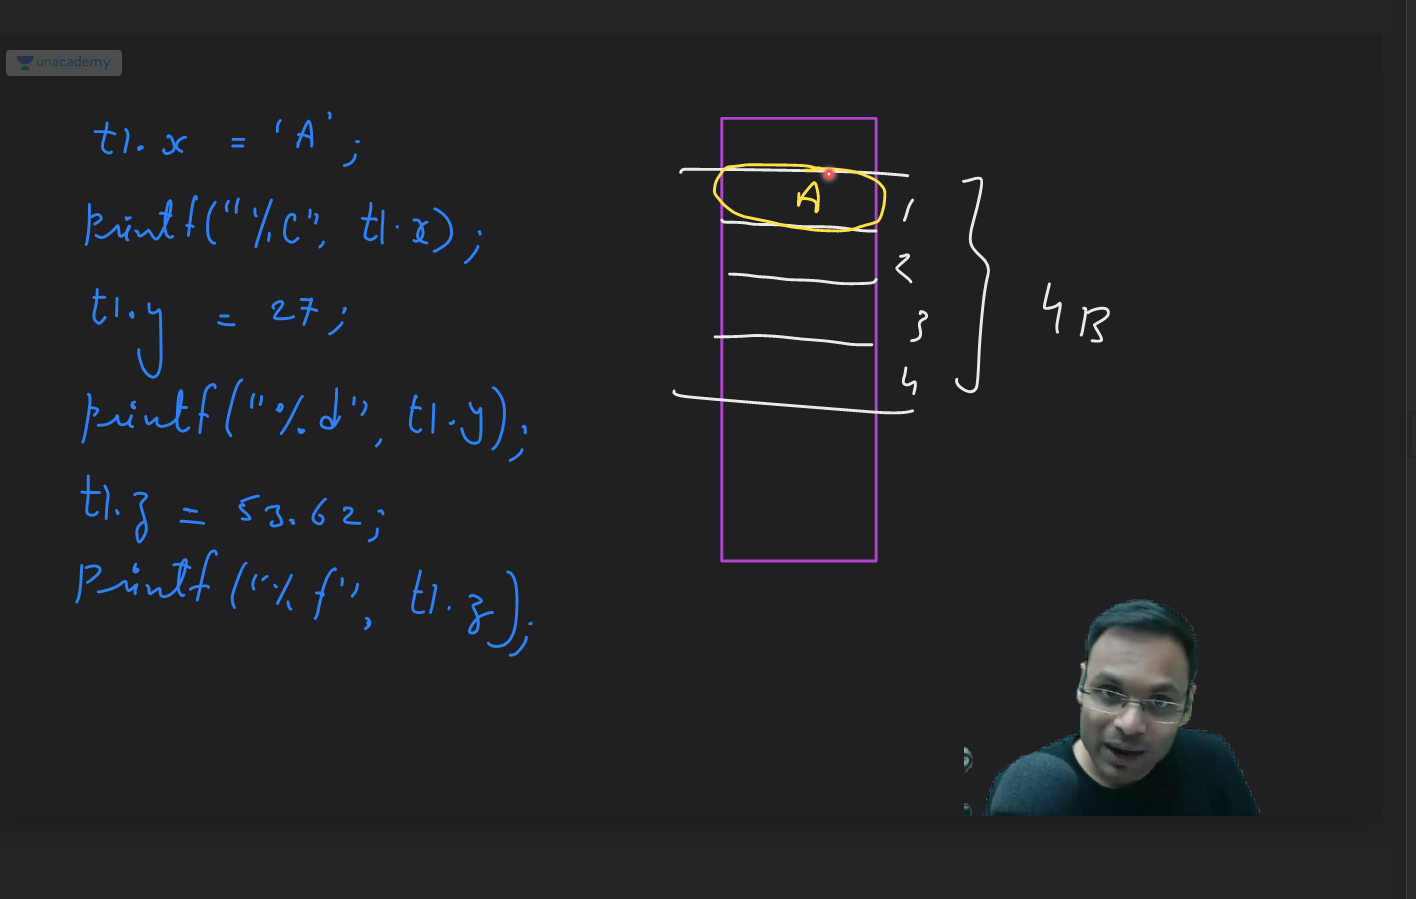 unacademy
t1.x = 'A';
printf("%c", t1.x);
t1.y = 27;
printf("%d", t1.y);
t1.z = 53.62;
printf("%f", t1.z);
A
1
2
3
4
4B